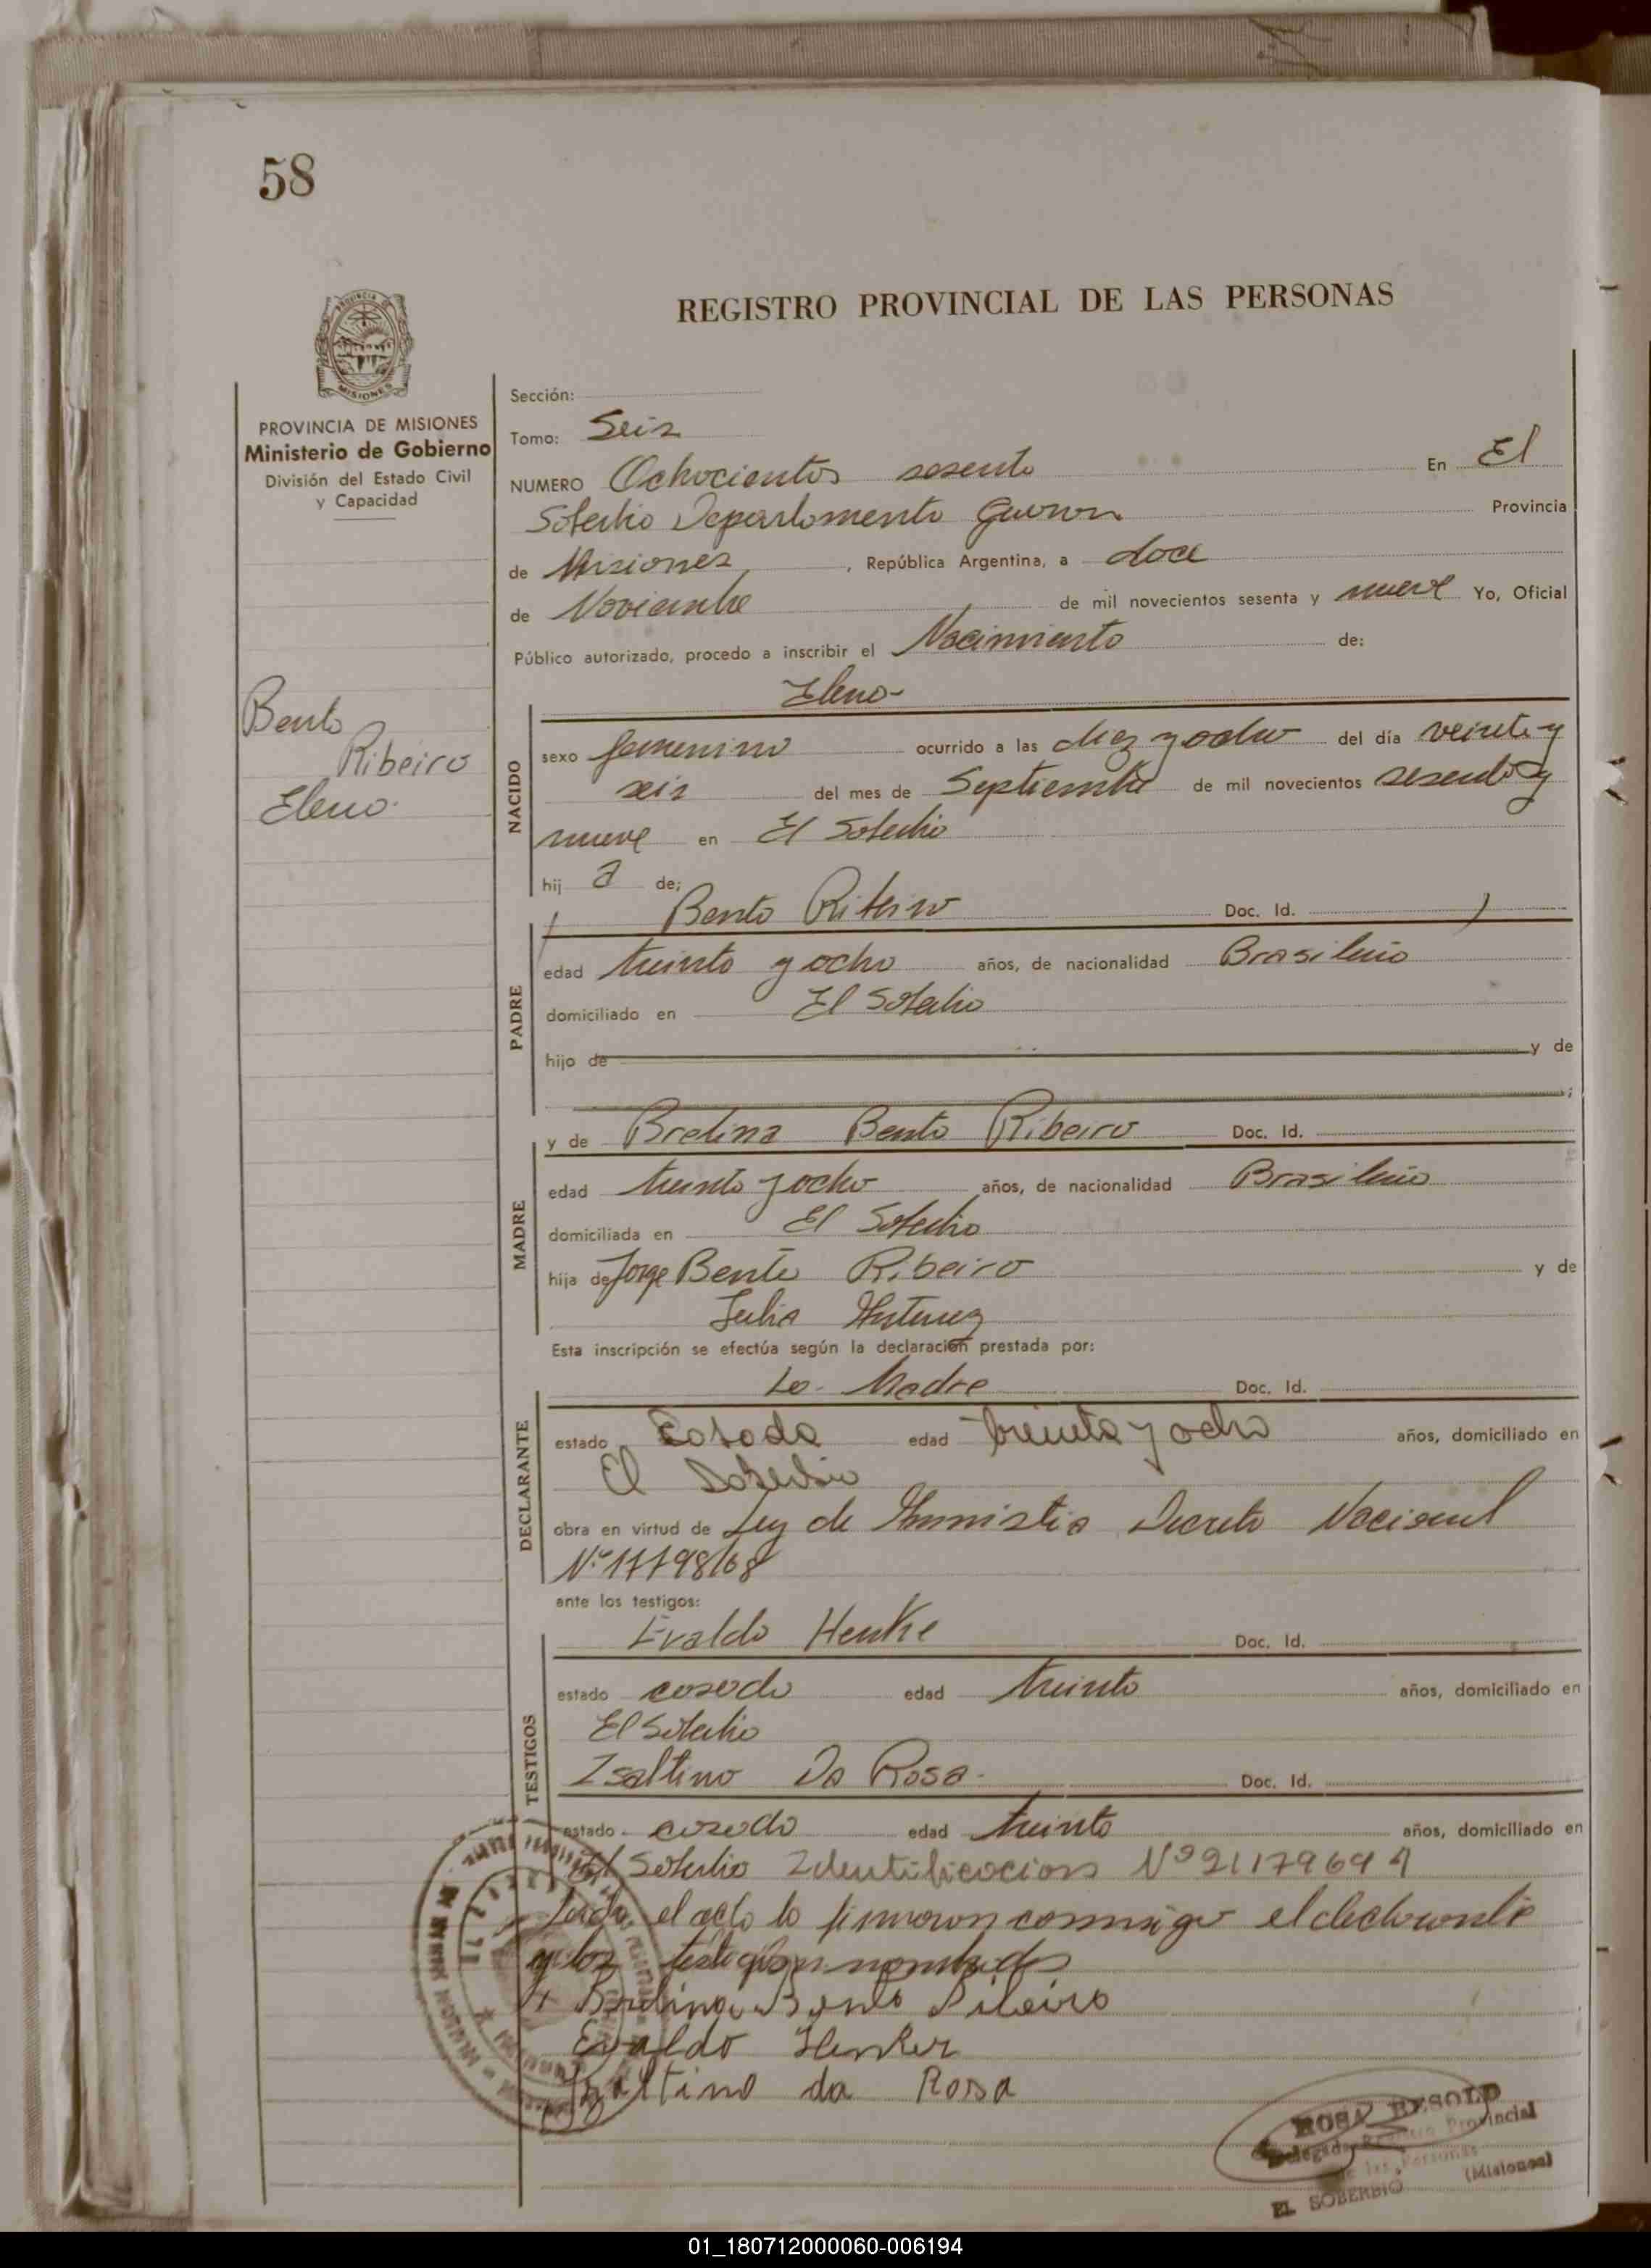 58
REGISTRO PROVINCIAL DE LAS PERSONAS
PROVINCIA DE MISIONES
Ministerio de Gobierno
División del Estado Civil
y Capacidad
Bento
Ribeiro
Elena
Sección:
Tomo: Seis
NUMERO Ochocientos sesenta En El
Soberbio Departamento Guarani Provincia
de Misiones, República Argentina, a doce
de Noviembre de mil novecientos sesenta y nueve Yo, Oficial
Público autorizado, procedo a inscribir el Nacimiento de:
Elena-
NACIDO
sexo femenino ocurrido a las diez y ocho del día veinte y
seis del mes de Septiembre de mil novecientos sesenta y
nueve en El Soberbio
hij a de;
Bento Ribeiro Doc. Id.
PADRE
edad treinta y ocho años, de nacionalidad Brasileño
domiciliado en El Soberbio
hijo de y de
;
y de Bretina Bento Ribeiro Doc. Id.
MADRE
edad treinta y ocho años, de nacionalidad Brasileña
domiciliada en El Soberbio
hija de Jorge Bento Ribeiro y de
Julia Antunez
Esta inscripción se efectúa según la declaración prestada por:
La Madre Doc. Id.
DECLARANTE
estado Casada edad treinta y ocho años, domiciliado en
El Soberbio
obra en virtud de Ley de Amnistia Decreto Nacional
Nº 17798/68
ante los testigos:
Evaldo Henke Doc. Id.
TESTIGOS
estado casado edad treinta años, domiciliado en
El Soberbio
Isaltino Da Rosa- Doc. Id.
estado casado edad treinta años, domiciliado en
El Soberbio Identificacion Nº
el acta la firmaron conmigo el declarante
y los testigos nombrados
Bento Ribeiro
Evaldo Henker
Isaltino da Rosa
ROSA BESOLD
Delegada Registro Provincial
de las Personas
EL SOBERBIO (Misiones)
01_180712000060-006194